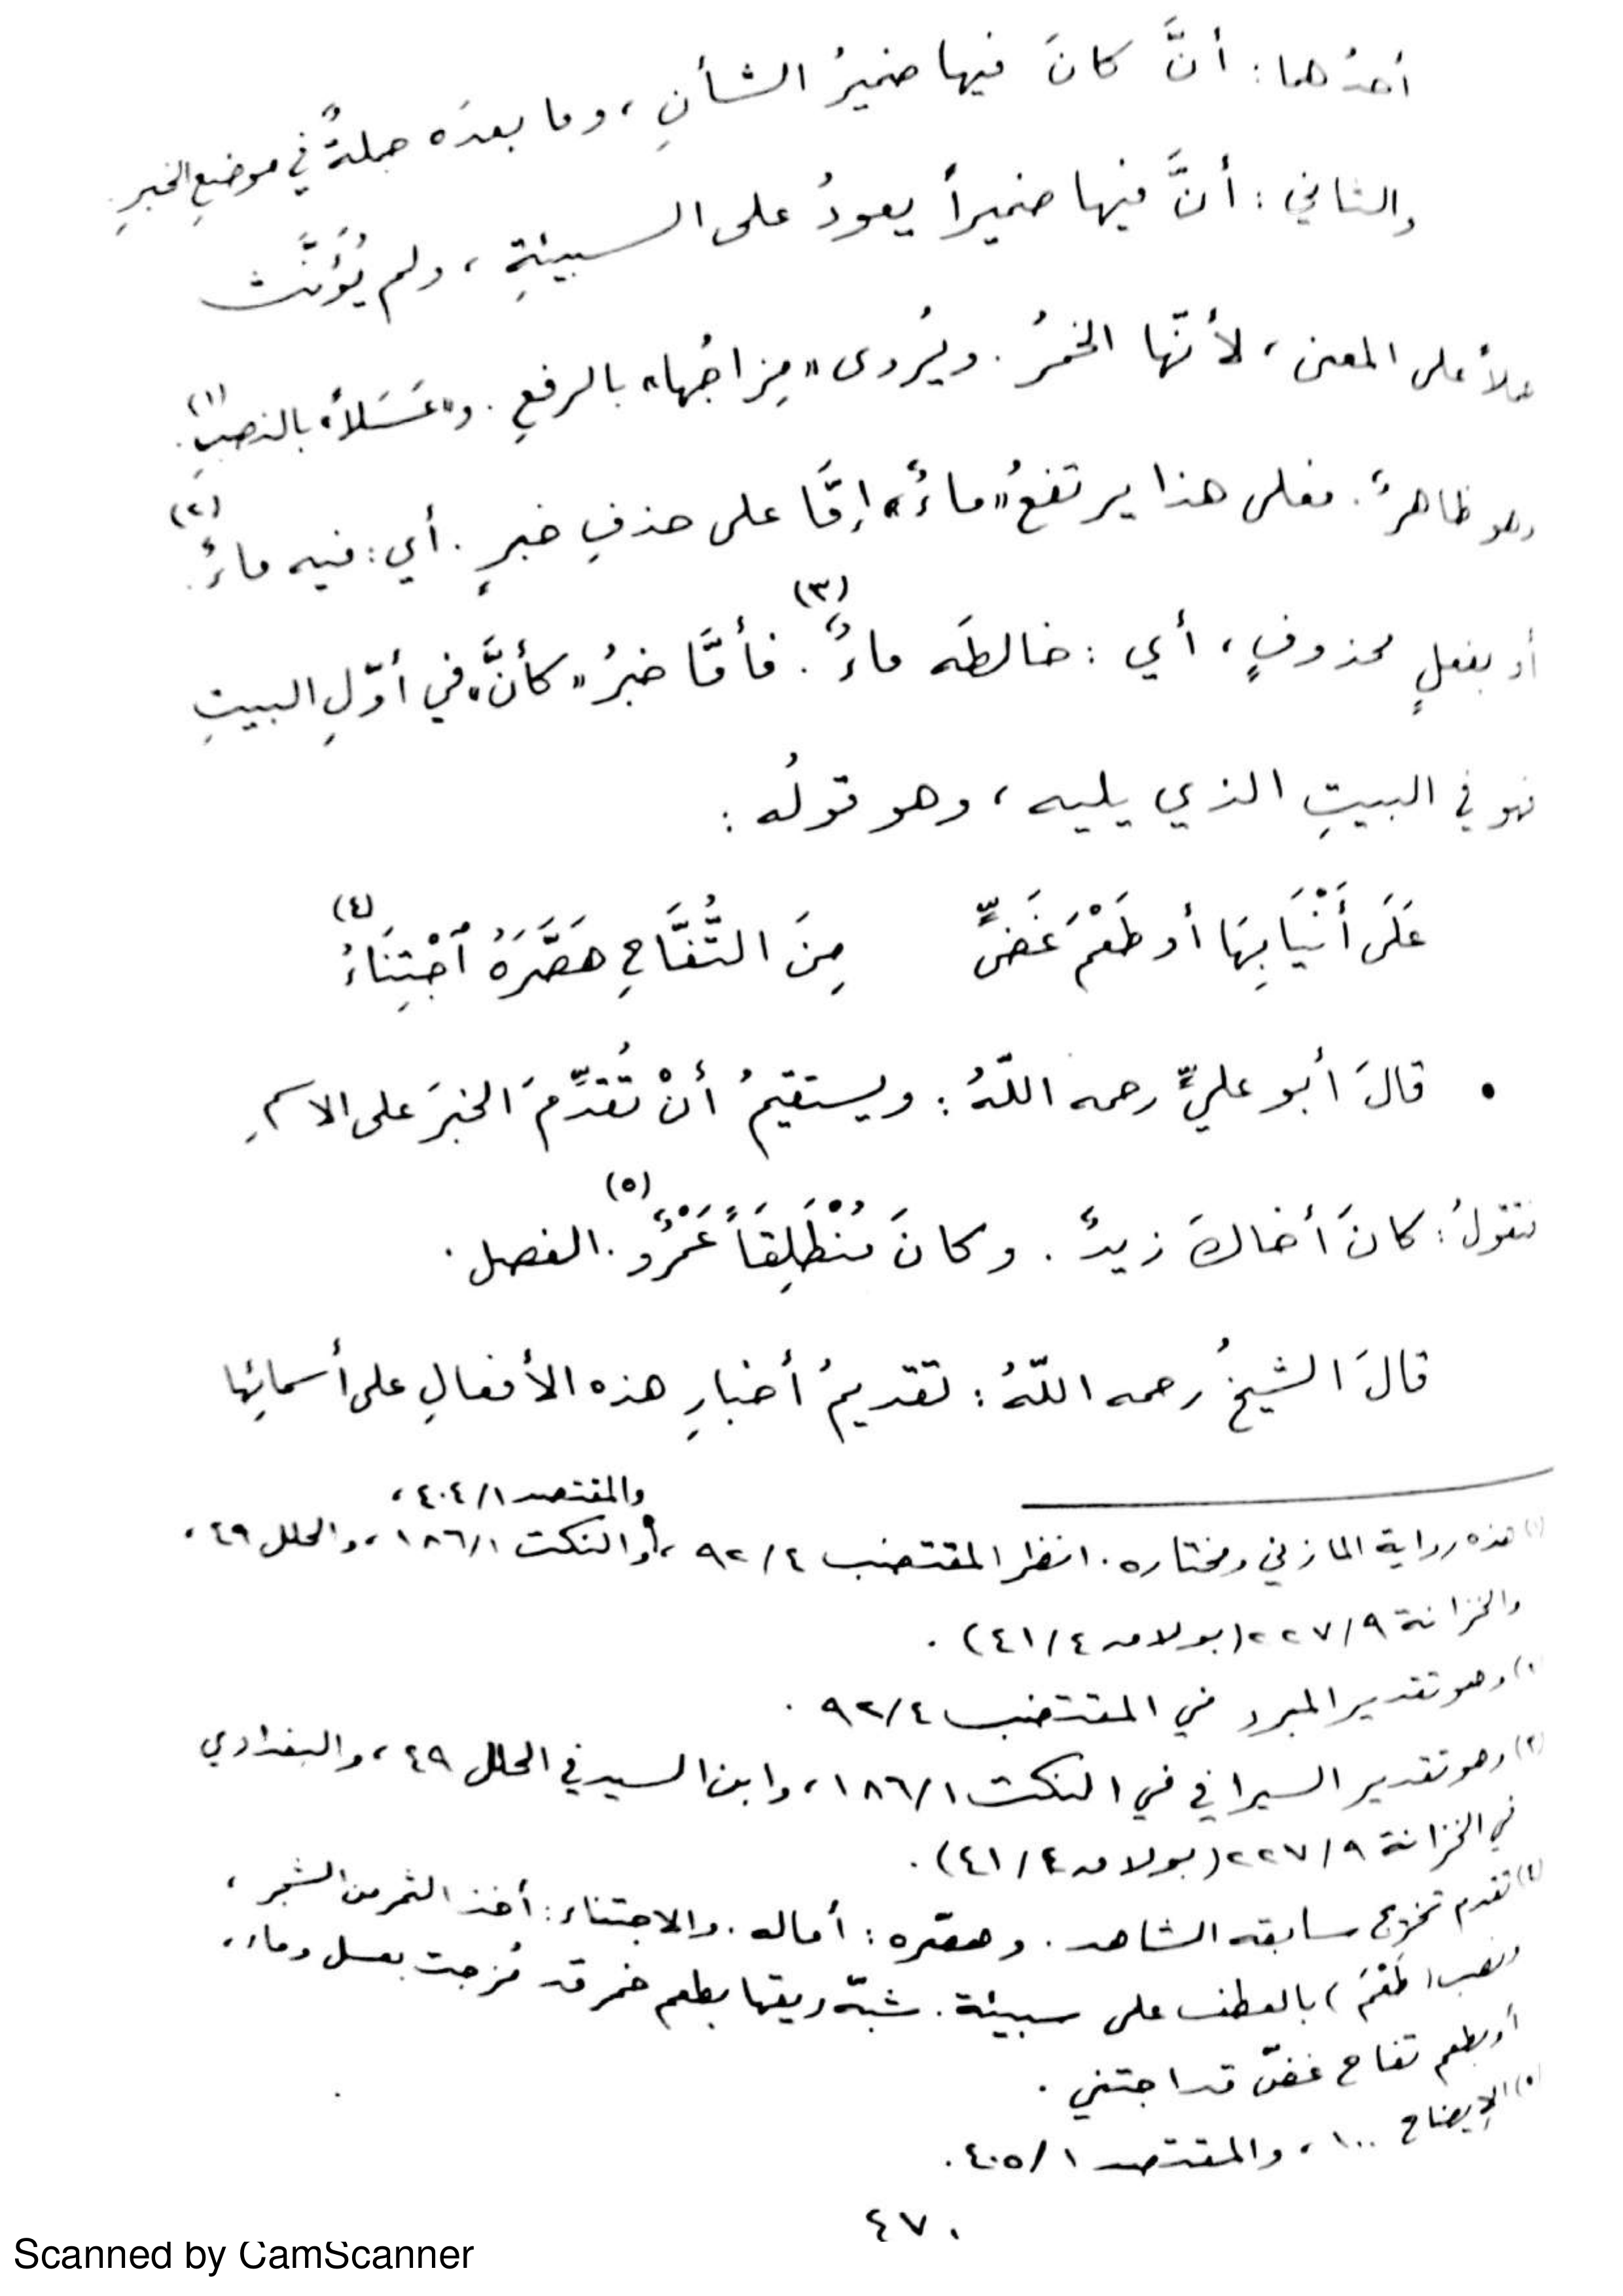 أحدُهما: أنَّ كانَ فيها ضميرُ الشأنِ، وما بعدَه جملةٌ في موضعِ الخبرِ.
والثاني: أنَّ فيها ضميراً يعودُ على السبيئةِ، ولم يُؤَنَّث
حملاً على المعنى، لأنّها الخمرُ. ويُروى «مِزاجُها» بالرفعِ. و«عَسَلاً» بالنصبِ(١).
وهو ظاهرٌ. فعلى هذا يرتفعُ «ماءٌ» إمَّا على حذفِ خبرٍ. أي: فيه ماءٌ(٢).
أو بفعلٍ محذوفٍ، أي: خالطَه ماءٌ(٣). فأمَّا خبرُ «كأنَّ» في أوّلِ البيتِ
فهو في البيتِ الذي يليه، وهو قولُه:
عَلَى أَنْيَابِهَا أو طَعْمَ غَضٍّ مِنَ التُّفَّاحِ هَصَّرَهُ ٱجْتِنَاءُ(٤)
• قالَ أبو عليٍّ رحمه اللّهُ: ويستقيمُ أنْ تُقدِّمَ الخبرَ على الاسمِ
فتقولُ: كانَ أخاكَ زيدٌ. وكانَ مُنْطَلِقاً عَمْرٌو(٥). الفصل.
قالَ الشيخُ رحمه اللّهُ: تقديمُ أخبارِ هذه الأفعالِ على أسمائِها
والمقتصد ٤٠٤/١،
(١) هذه رواية المازني ومختاره. انظر المقتضب ٩٢/٤، والنكت ١٨٦/١، والحلل ٤٩،
والخزانة ٢٢٧/٩ (بولاق ٤١/٤).
(٢) وهو تقدير المبرد في المقتضب ٩٢/٤.
(٣) وهو تقدير السيرافي في النكت ١٨٦/١، وابن السيد في الحلل ٤٩، والبغدادي
في الخزانة ٢٢٧/٩ (بولاق ٤١/٤).
(٤) تقدم تخريج سابقه الشاهد. وهصّره: أماله. والاجتناء: أخذ الثمر من الشجر،
ونصب (طَعْمَ) بالعطف على سبيئة. شبّه ريقها بطعم خمر قد مُزجت بعسل وماء،
أو بطعم تفاح غضّ قد اجتني.
(٥) الإيضاح ١٠٠، والمقتصد ٤٠٥/١.
٤٧٠
Scanned by CamScanner